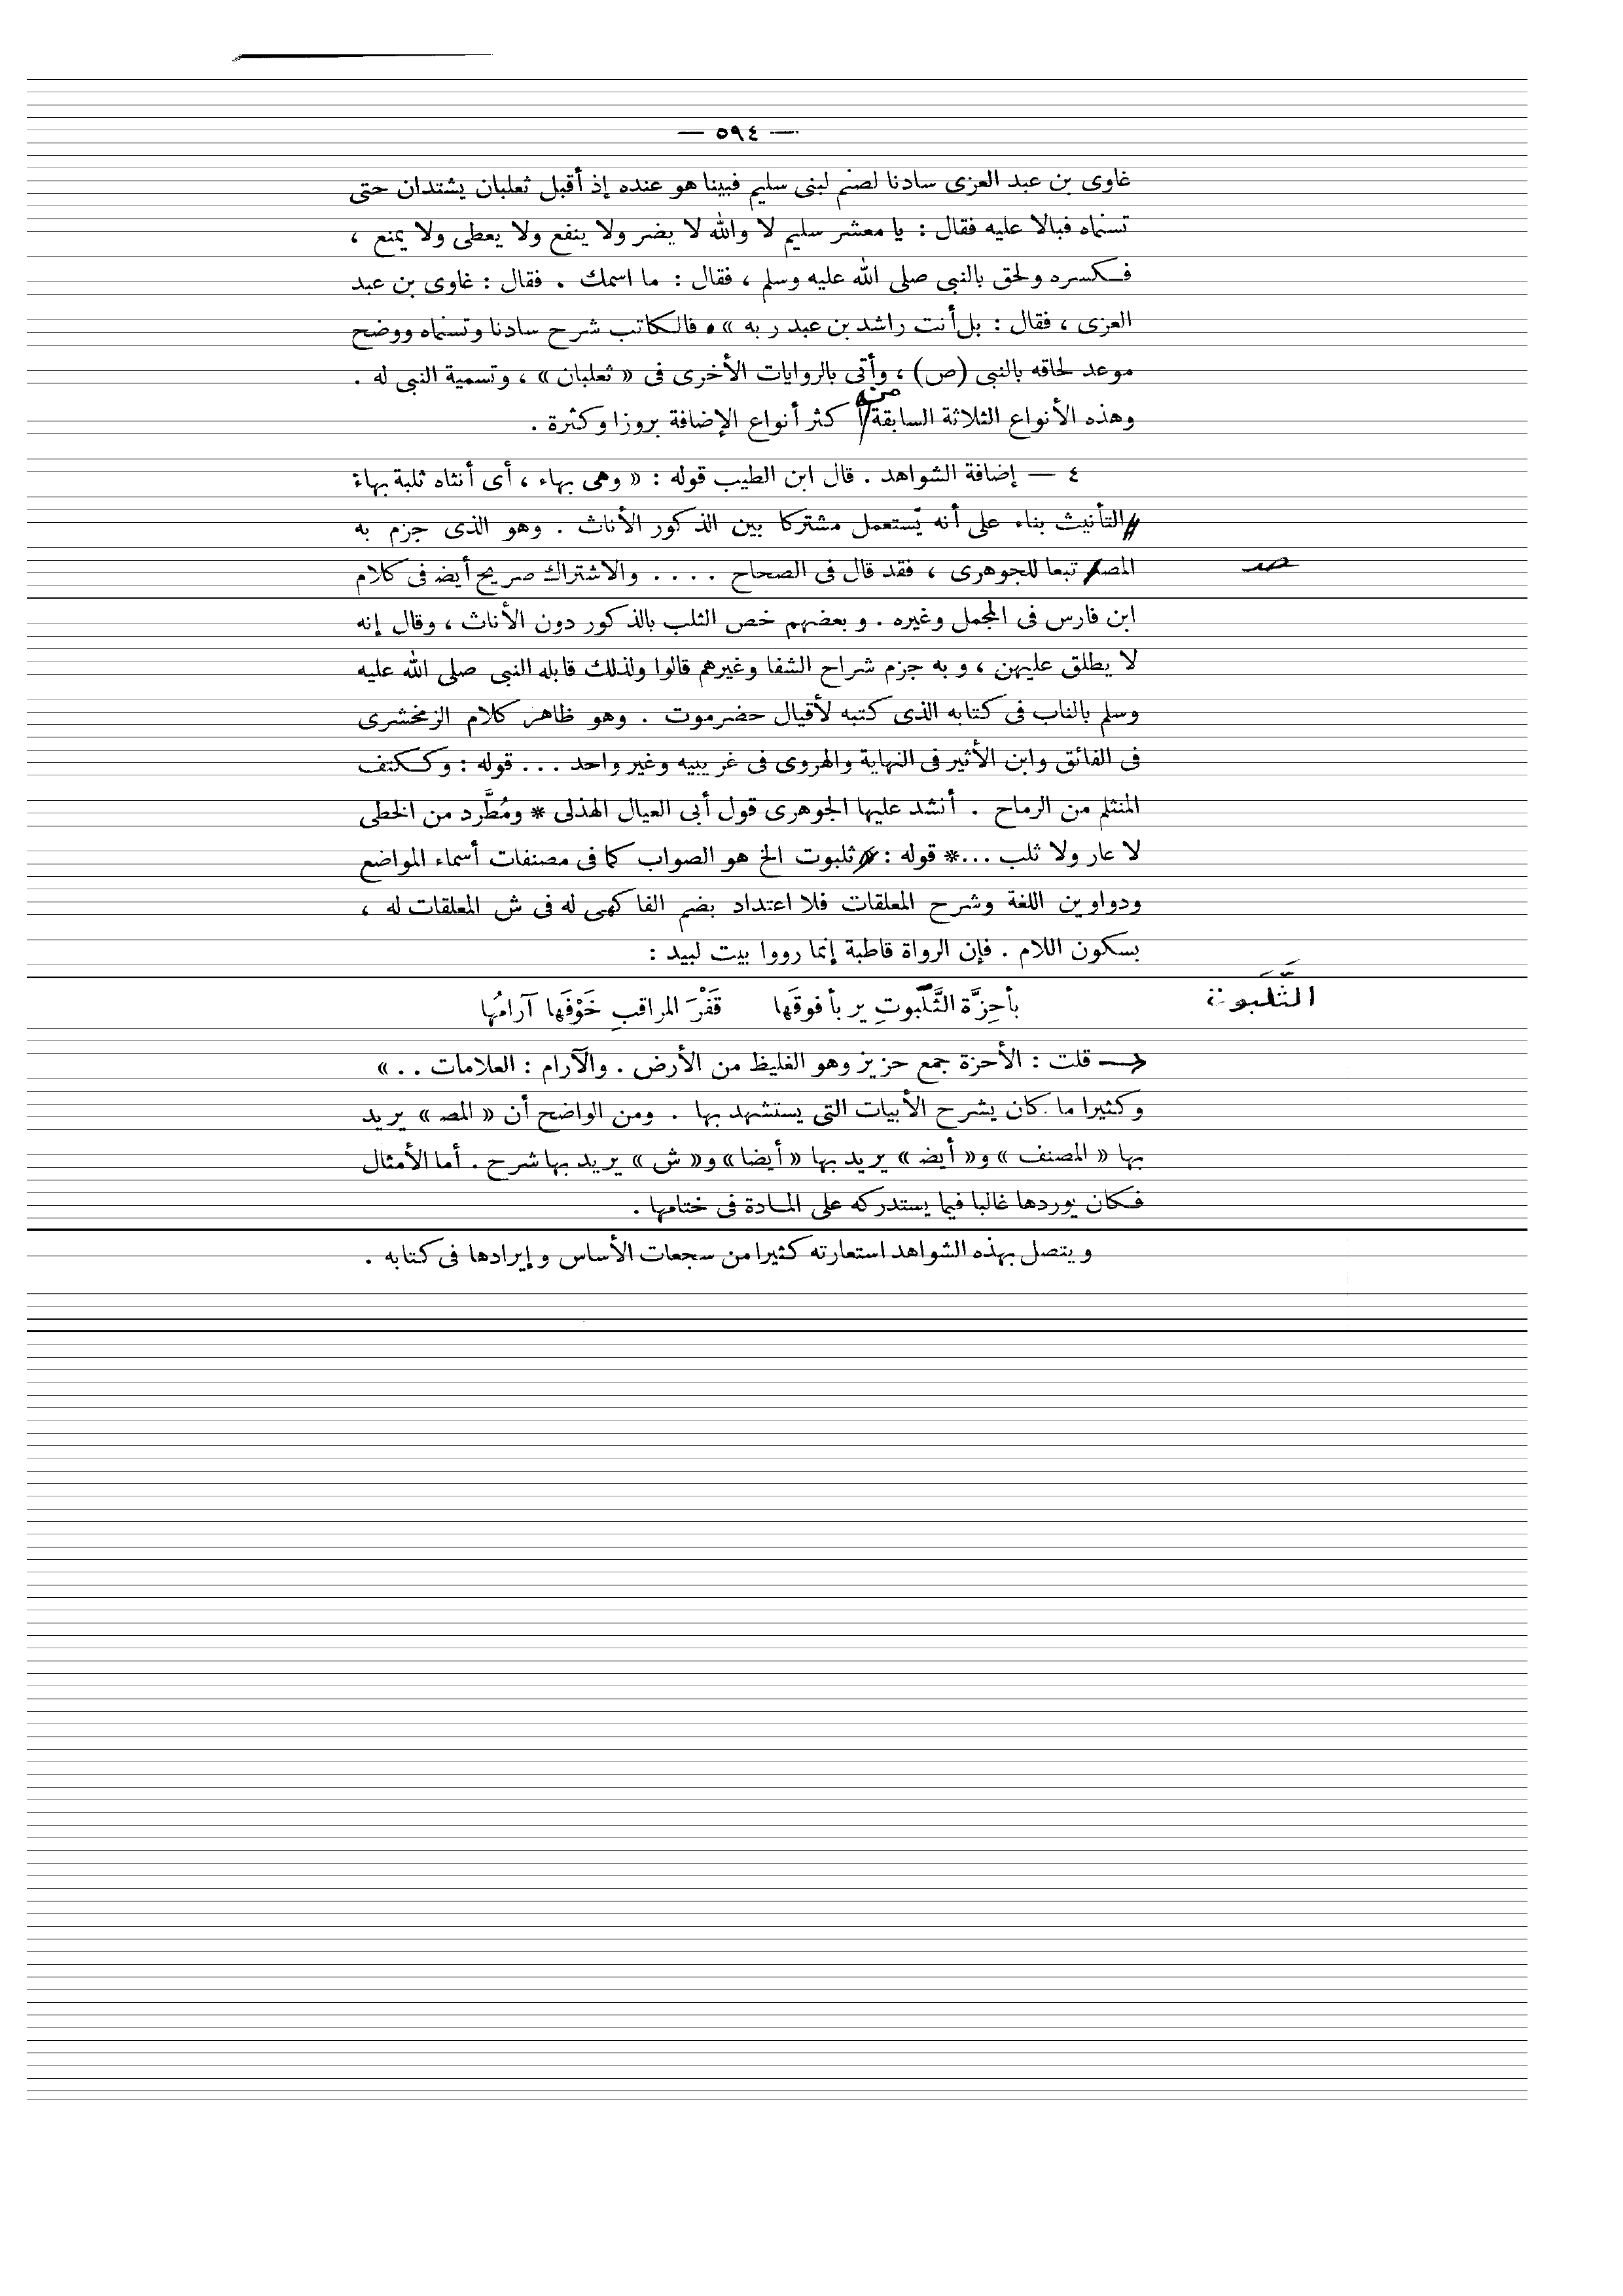 — ٥٩٤ —
غاوى بن عبد العزى سادنا لصنم لبنى سليم فبينا هو عنده إذ أقبل ثعلبان يشتدان حتى
تسنماه فبالا عليه فقال : يا معشر سليم لا والله لا يضر ولا ينفع ولا يعطى ولا يمنع ،
فكسره ولحق بالنبى صلى الله عليه وسلم ، فقال : ما اسمك . فقال : غاوى بن عبد
العزى ، فقال : بل أنت راشد بن عبد ربه » . فالكاتب شرح سادنا وتسنماه ووضح
موعد لحاقه بالنبى (ص) ، وأتى بالروايات الأخرى فى « ثعلبان » ، وتسمية النبى له .
من
وهذه الأنواع الثلاثة السابقة أكثر أنواع الإضافة بروزا وكثرة .
٤ — إضافة الشواهد . قال ابن الطيب قوله : « وهى بهاء ، أى أنثاه ثلبة بهاء
التأنيث بناء على أنه يستعمل مشتركا بين الذكور الأناث . وهو الذى جزم به
المصـ تبعا للجوهرى ، فقد قال فى الصحاح .... والاشتراك صريح أيضـ فى كلام
صـ
ابن فارس فى المجمل وغيره . وبعضهم خص الثلب بالذكور دون الأناث ، وقال إنه
لا يطلق عليهن ، وبه جزم شراح الشفا وغيرهم قالوا ولذلك قابله النبى صلى الله عليه
وسلم بالناب فى كتابه الذى كتبه لأقيال حضرموت . وهو ظاهر كلام الزمخشرى
فى الفائق وابن الأثير فى النهاية والهروى فى غريبيه وغير واحد ... قوله : وككتف
المنثلم من الرماح . أنشد عليها الجوهرى قول أبى العيال الهذلى * ومُطَّرد من الخطى
لا عار ولا ثلب ...* قوله : ثلبوت الخ هو الصواب كما فى مصنفات أسماء المواضع
ودواوين اللغة وشرح المعلقات فلا اعتداد بضم الفاكهى له فى ش المعلقات له ،
بسكون اللام . فإن الرواة قاطبة إنما رووا بيت لبيد :
بأحِزَّة الثَّلَبوتِ يربأ فوقَها قَفْرَ المراقبِ خَوْفَها آرامُها
الثَّلَبوت
قلت : الأحزة جمع حزيز وهو الغليظ من الأرض . والآرام : العلامات .. »
وكثيرا ما كان يشرح الأبيات التى يستشهد بها . ومن الواضح أن « المصـ » يريد
بها « المصنف » و« أيضـ » يريد بها « أيضا » و« ش » يريد بها شرح . أما الأمثال
فكان يوردها غالبا فيما يستدركه على المادة فى ختامها .
ويتصل بهذه الشواهد استعارته كثيرا من سجعات الأساس وإيرادها فى كتابه .